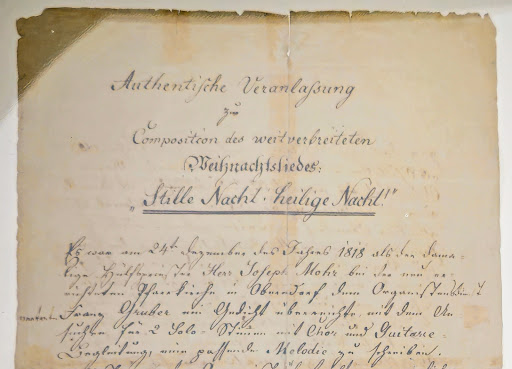 Authentische Veranlassung
zur
Composition des weitverbreiteten
Weihnachtsliedes:
„Stille Nacht, heilige Nacht!"
Es war am 24ten Dezember des Jahres 1818 als der dama-
lige Hülfspriester Herr Joseph Mohr bei der neu er-
richteten Pfarrkirche in Oberndorf dem Organistendienst
Franz Gruber ein Gedicht überreichte, mit dem An
suchen für 2 Solo-Stimmen mit Chor und Guitarre-
Begleitung, eine passende Melodie zu schreiben.